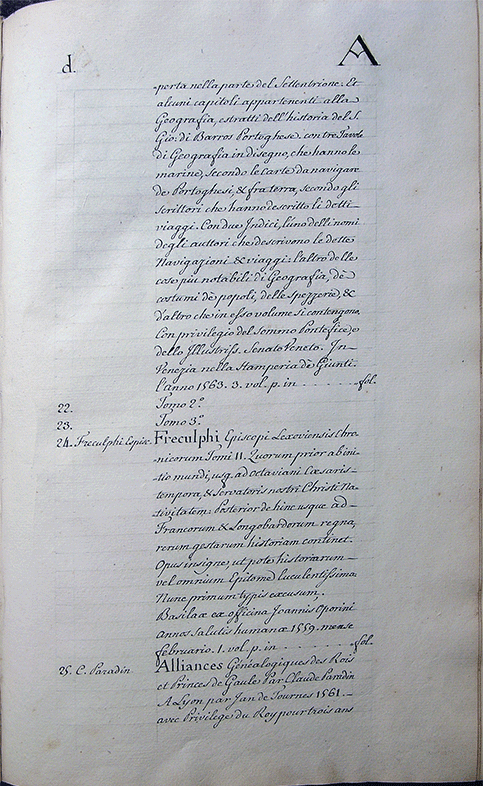 d.
A
perta nella parte del Settentrione. Et
alcuni capitoli appartenenti alla
Geografia, estratti dell'historia del S.
Gio: di Barros Portoghese. con tre Tavole
di Geografia in disegno, che hanno le
marine, secondo le Carte da navigare
de Portoghesi, & fra terra, secondo gli
scrittori che hanno descritto li detti
viaggi. Con due Indici, l'uno delli nomi
degli auttori che descrivono le dette
Navigazioni & viaggi: l'altro delle
cose più notabili di Geografia, de
costumi de popoli, delle spezzerie, &
d'altro che in esso volume si contengono.
Con privilegio del Sommo Pontefice, e
dello Illustriss. Senato Veneto. In
Venezia nella Stamperia de Giunti.
l'anno 1563. 3. vol. p. in . . . . . . fol.
22. Tomo 2.º
23. Tomo 3.º
24. Freculphi Episc. Freculphi Episcopi Lexoviensis Chro
nicorum Tomi II. Quorum prior ab ini
tio mundi, usq. ad Octaviani Cæsaris
tempora, & Servatoris nostri Christi Na
tivitatem: Posterior dehinc usque ad
Francorum & Longobardorum regna,
rerum gestarum historiam continet.
Opus insigne, ut pote historiarum
vel omnium Epitome luculentissima
Nunc primum typis excusum.
Basilæ ex officina Joannis Oporini
Annos Salutis humanæ 1559. mense
februario. 1. vol. p. in . . . . . . fol.
25. C. Paradin Alliances Genealogiques des Rois
et Princes de Gaule Par Claude Paradin
A Lyon par Jan de Tournes 1561.
avec Privilege du Roy pour trois ans